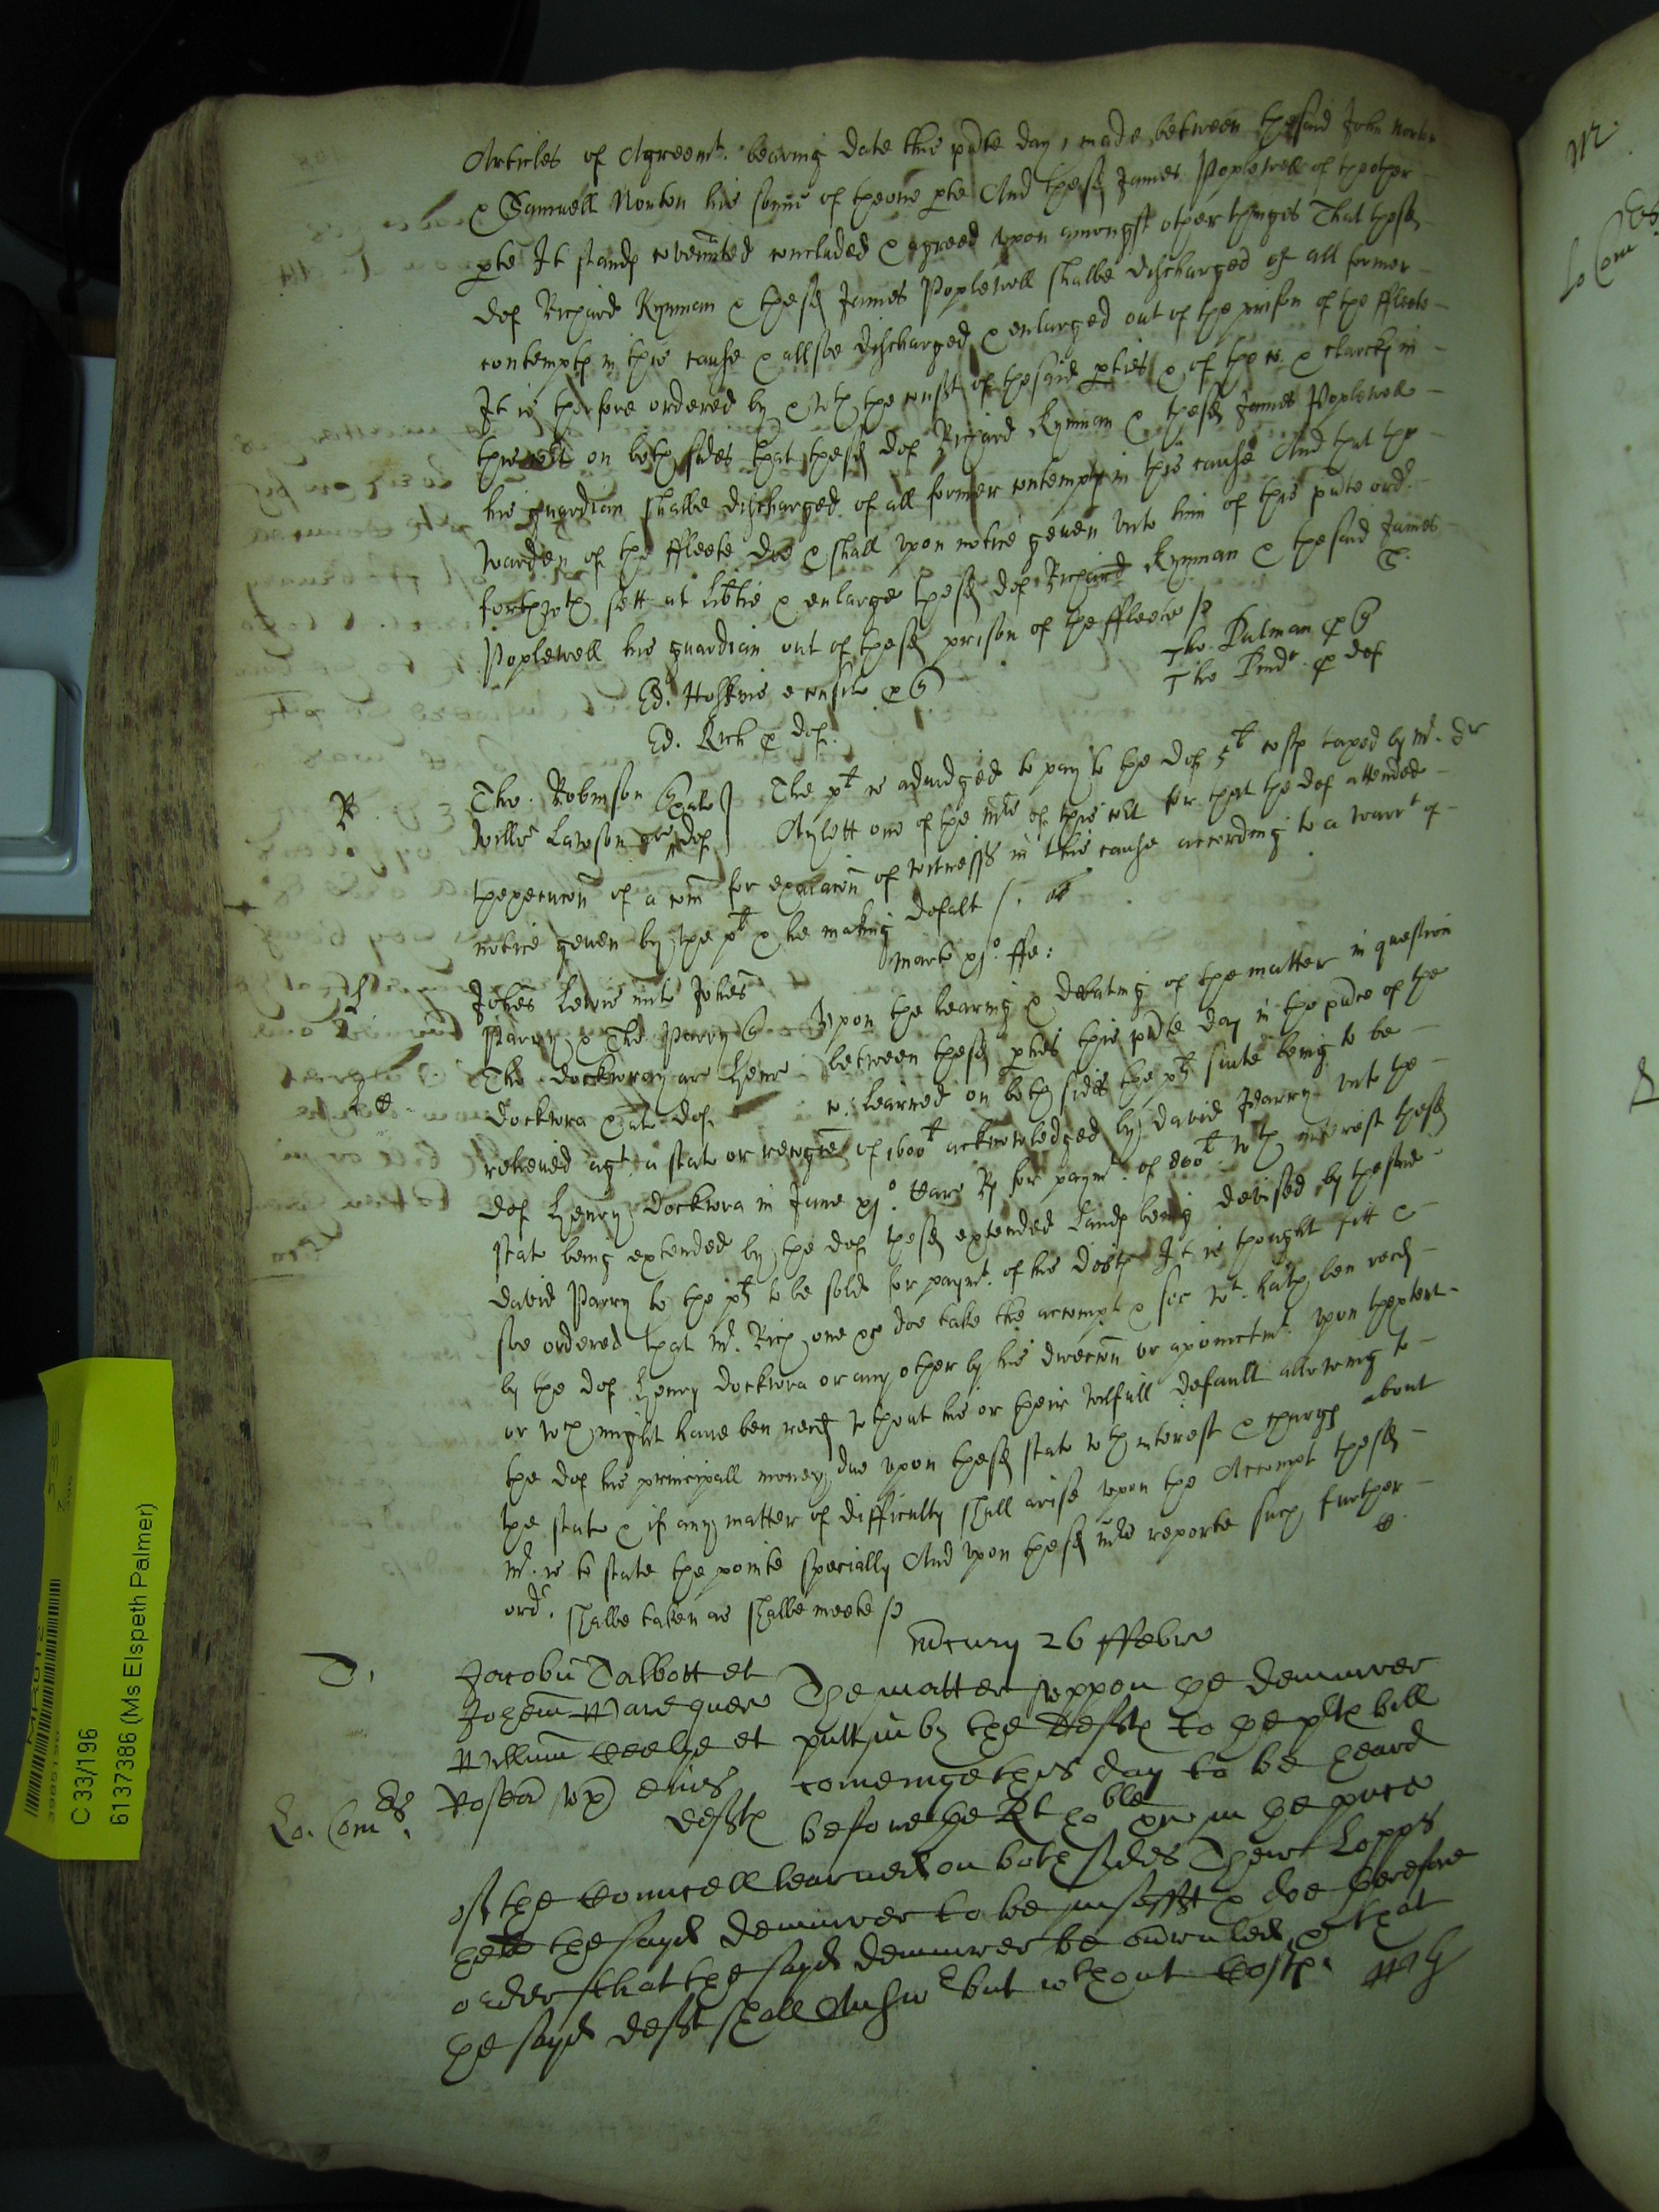 Articles of Agreemt. bearing date this pñte day, made between thesaid John Norton
& Samuell Norton his sonne of theone pte And thesd James Poplewell of theother
pte It stands covenñted concluded & agreed upon amongst other things That thesd
def Richard Kynman & thesd James Poplewell shalbe discharged of all former
contempts in this cause & allsoe discharged & enlarged out of the prison of the ffleete
It is therfore ordered by & wth the consent of thesaid pties & of the co. & clarcks in
this Cot on both sides that thesd def Richard Kynman & thesd James Poplewell
his guardian shalbe discharged of all former contempts in this cause And that the
warden of the ffleete doe & shall upon notice geven unto him of this pñte ordr
forthwth sett at libtie & enlarge thesd def Richard Kynman & thesaid James
Poplewell his guardian out of thesd prison of the ffleete
Ed. Hoskins
Ed. Rich p def.
Tho. Pulman p
Tho. Pinder p def
R.
Tho. Robinson
The plt is adiudged to pay to the def costs taxed by Mr. Dr
Willm Lawson def
Aylett one of the Mrs of this Cot for that the def attended
thexecucon of a com for exaiacon of witnesses in this cause according to a warrt of
notice geven by the plt & he making defalt
Marte xjo. ffe:
Johes Lewis Johes
Parry & Tho Parry
Upon the hearing & debating of the matter in question
Tho. Dockwray ar Henr
between thesd pties this pñte day in the pñce of the
Dockwra def
co. learned on both sides the plts suite being to be
releived agt a statute or recogñ of 1600l acknowledged by David Parry unto the
def Henry Dockwra in June xjo. for paymt. of 800l wth interest thesd
statute being extended by the def thesd extended lands being devised by thesaid
David Parry to the plts to be sold for paymt. of his debts It is thought fitt &
soe ordered that Mr. Rich one &c doe take the accompt & see wt hath ben recd
by the def Henry Dockwra or any other by his direccon or apoinctmt. upon thextent
or wch might have ben recd wthout his or their wilfull default allowing to
the def his principall money due upon thesd statute wth interest & charges about
the statute & if any matter of difficulty shall arise upon the Accompt thesd
Mr. is to state the pointe specially And upon thesd Mrs reporte such further
ordr. shalbe taken as shalbe meete
Mcury 26 ffebr
T.
Jacobu Talbott et
Johem quer
The matter uppon the demurrer
Willum et
putt in by the defts to the plts bill
ux eius
comeinge this day to be heard
Lo. Com
defts
before the Rt hoble in the pñce
of the Councell learned on both sides Their Lopps
held the sayd demurrer to be insuffit & doe therefore
order that the sayd demurrer be ouerruled & that
the sayd deft shall Answr but wthout Costs.
C 33/196
6137386 (Ms Elspeth Palmer)